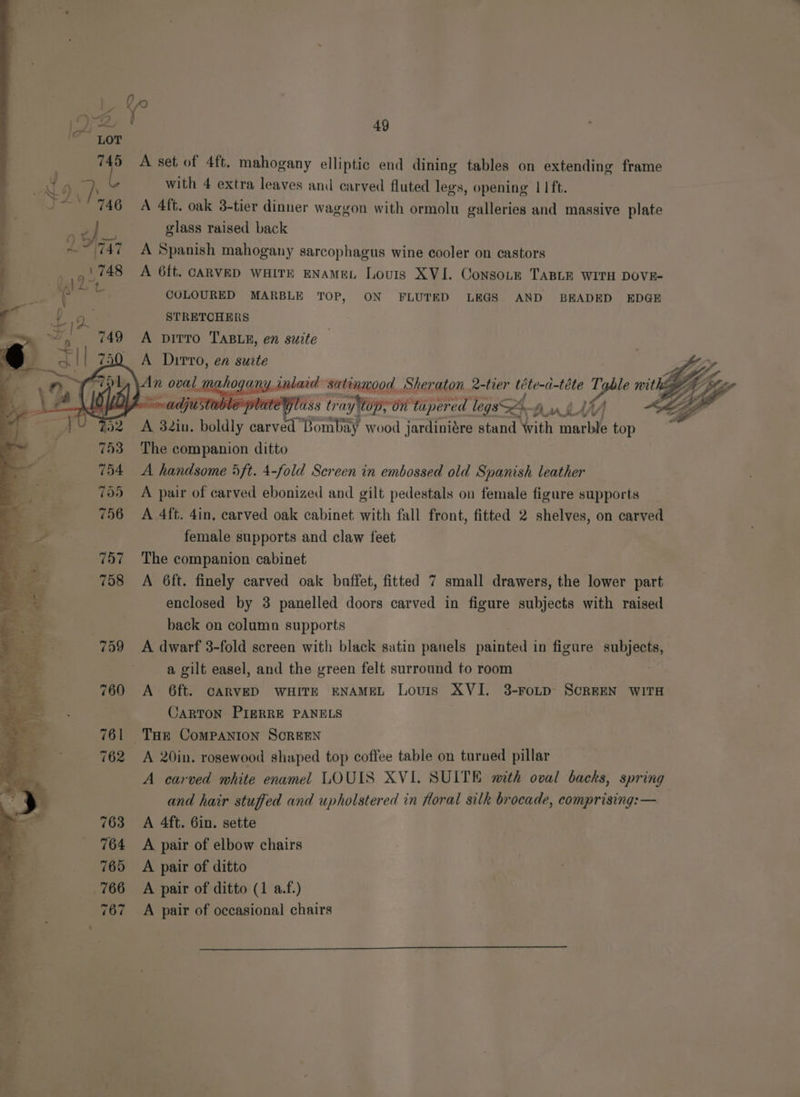 49
LOT
745 A set of 4ft. mahogany elliptic end dining tables on extending frame
with 4 extra leaves and carved fluted legs, opening 11ft.
746 A 4ft. oak 3-tier dinner waggon with ormolu galleries and massive plate
glass raised back
747 A Spanish mahogany sarcophagus wine cooler on castors
748 A 6ft. CARVED WHITE ENAMEL LOUIS XVI. CONSOLE TABLE WITH DOVE-
COLOURED MARBLE TOP, ON FLUTED LEGS AND BEADED EDGE
STRETCHERS
749 A DITTO TABLE, en suite
750 A DITTO, en suite
751 An oval mahogany inlaid satinwood Sheraton 2-tier tête-à-tête Table with
adjustable plate glass tray top, on tapered legs
752 A 32in. boldly carved Bombay wood jardinière stand with marble top
753 The companion ditto
754 A handsome 5ft. 4-fold Screen in embossed old Spanish leather
755 A pair of carved ebonized and gilt pedestals on female figure supports
756 A 4ft. 4in. carved oak cabinet with fall front, fitted 2 shelves, on carved
female supports and claw feet
757 The companion cabinet
758 A 6ft. finely carved oak buffet, fitted 7 small drawers, the lower part
enclosed by 3 panelled doors carved in figure subjects with raised
back on column supports
759 A dwarf 3-fold screen with black satin panels painted in figure subjects,
a gilt easel, and the green felt surround to room
760 A 6ft. CARVED WHITE ENAMEL LOUIS XVI. 3-FOLD SCREEN WITH
CARTON PIERRE PANELS
761 THE COMPANION SCREEN
762 A 20in. rosewood shaped top coffee table on turned pillar
A carved white enamel LOUIS XVI. SUITE with oval backs, spring
and hair stuffed and upholstered in floral silk brocade, comprising:—
763 A 4ft. 6in. sette
764 A pair of elbow chairs
765 A pair of ditto
766 A pair of ditto (1 a.f.)
767 A pair of occasional chairs